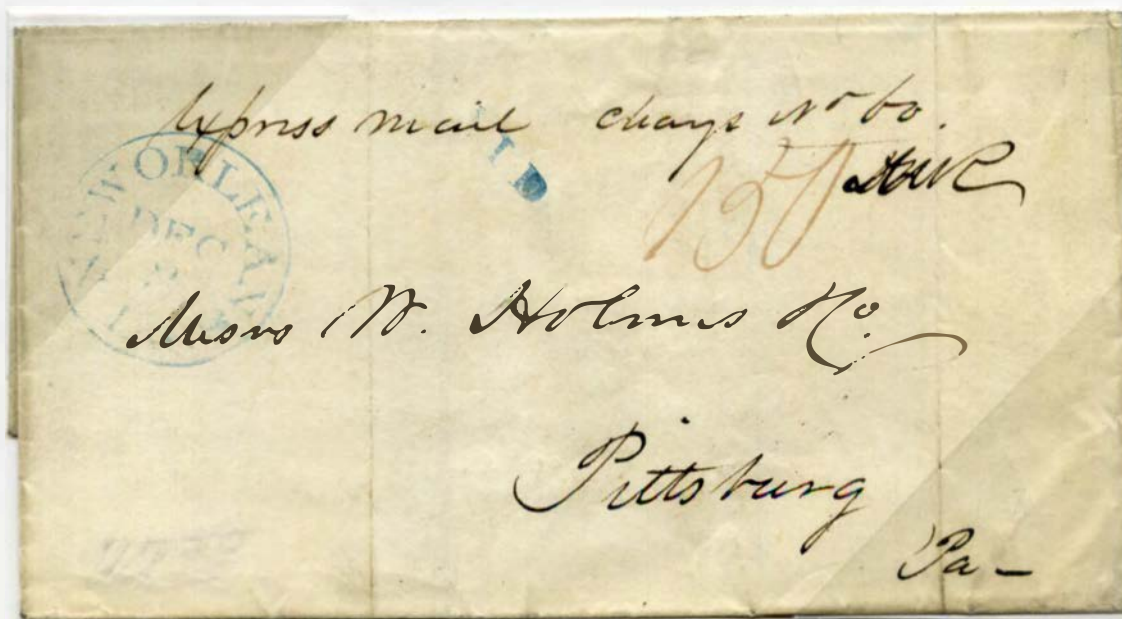 Express mail charge No 60.
150
NEW ORLEANS
DEC
Messrs W. Holmes &Co.
Pittsburg
Pa-